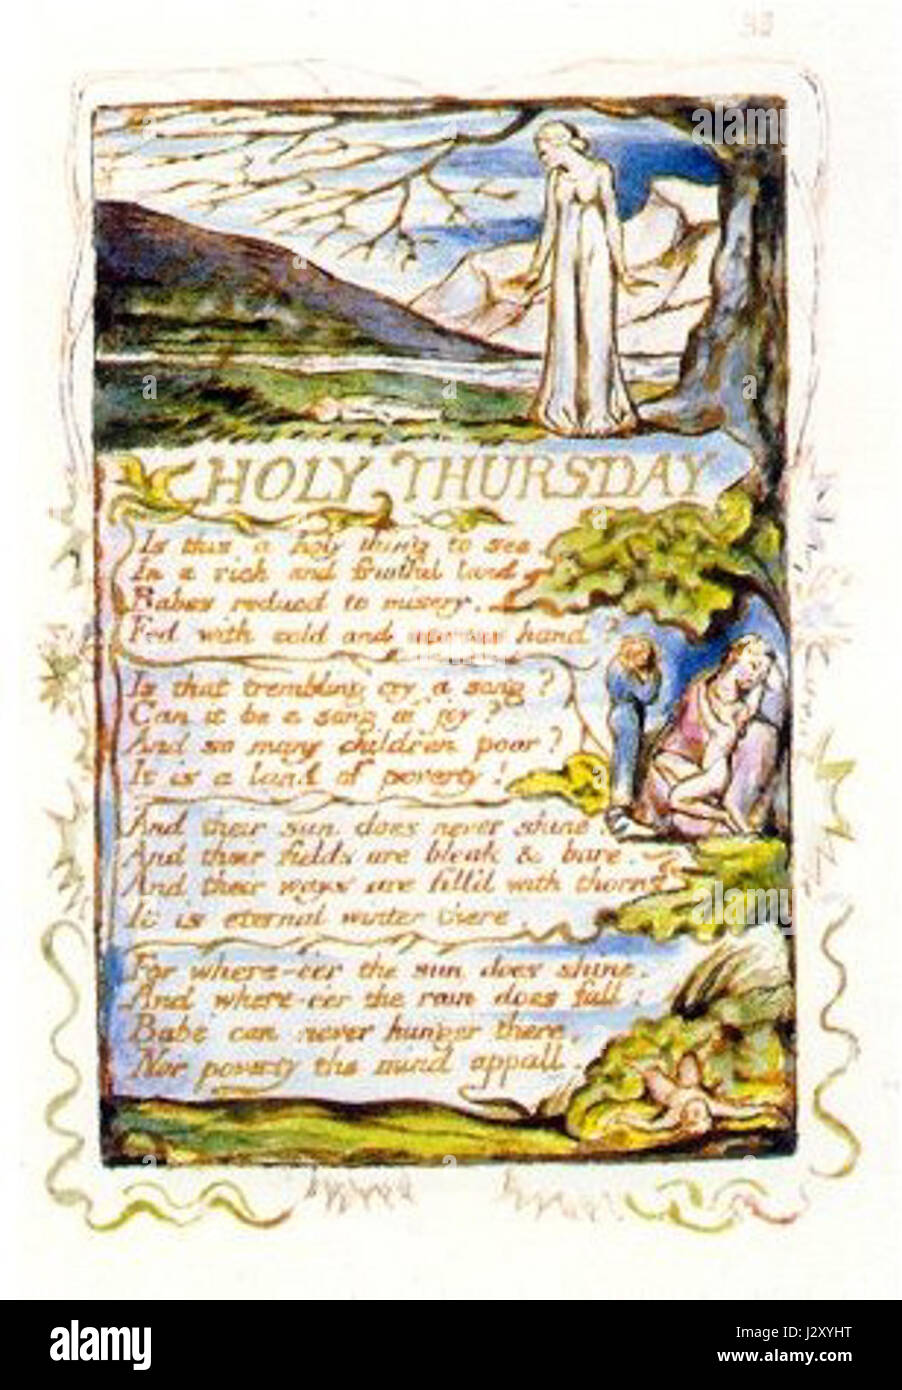 HOLY THURSDAY
Is this a holy thing to see.
In a rich and fruitful land.
Babes reduced to misery.
Fed with cold and hand
Is that trembling cry a song?
Can it be a song of joy?
And so many children poor?
It is a land of poverty!
And their sun does never shine.
And their fields are bleak & bare.
And their ways are fill'd with thorns
It is eternal winter there.
For where-e'er the sun does shine.
And where-e'er the rain does fall:
Babe can never hunger there,
Nor poverty the mind appall.
a
alamy
alamy
Image ID: J2XYHT
www.alamy.com